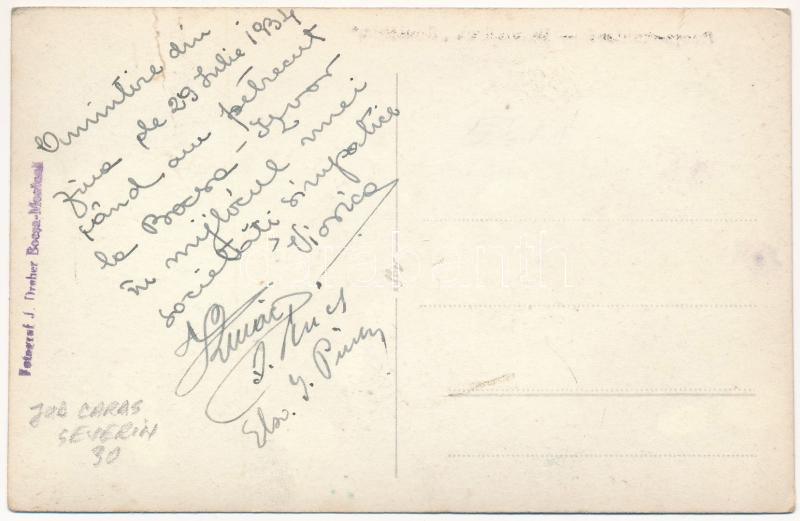 Amintire din
ziua de 29 Iulie 1934
când am petrecut
la Bocsa-Izvor
în mijlocul unei
societăți simpatice
Viorica
Elsv. I.
Fotograf J. Dreher Bocșa-Montană
JUD CARAS
SEVERIN
30
darabanth